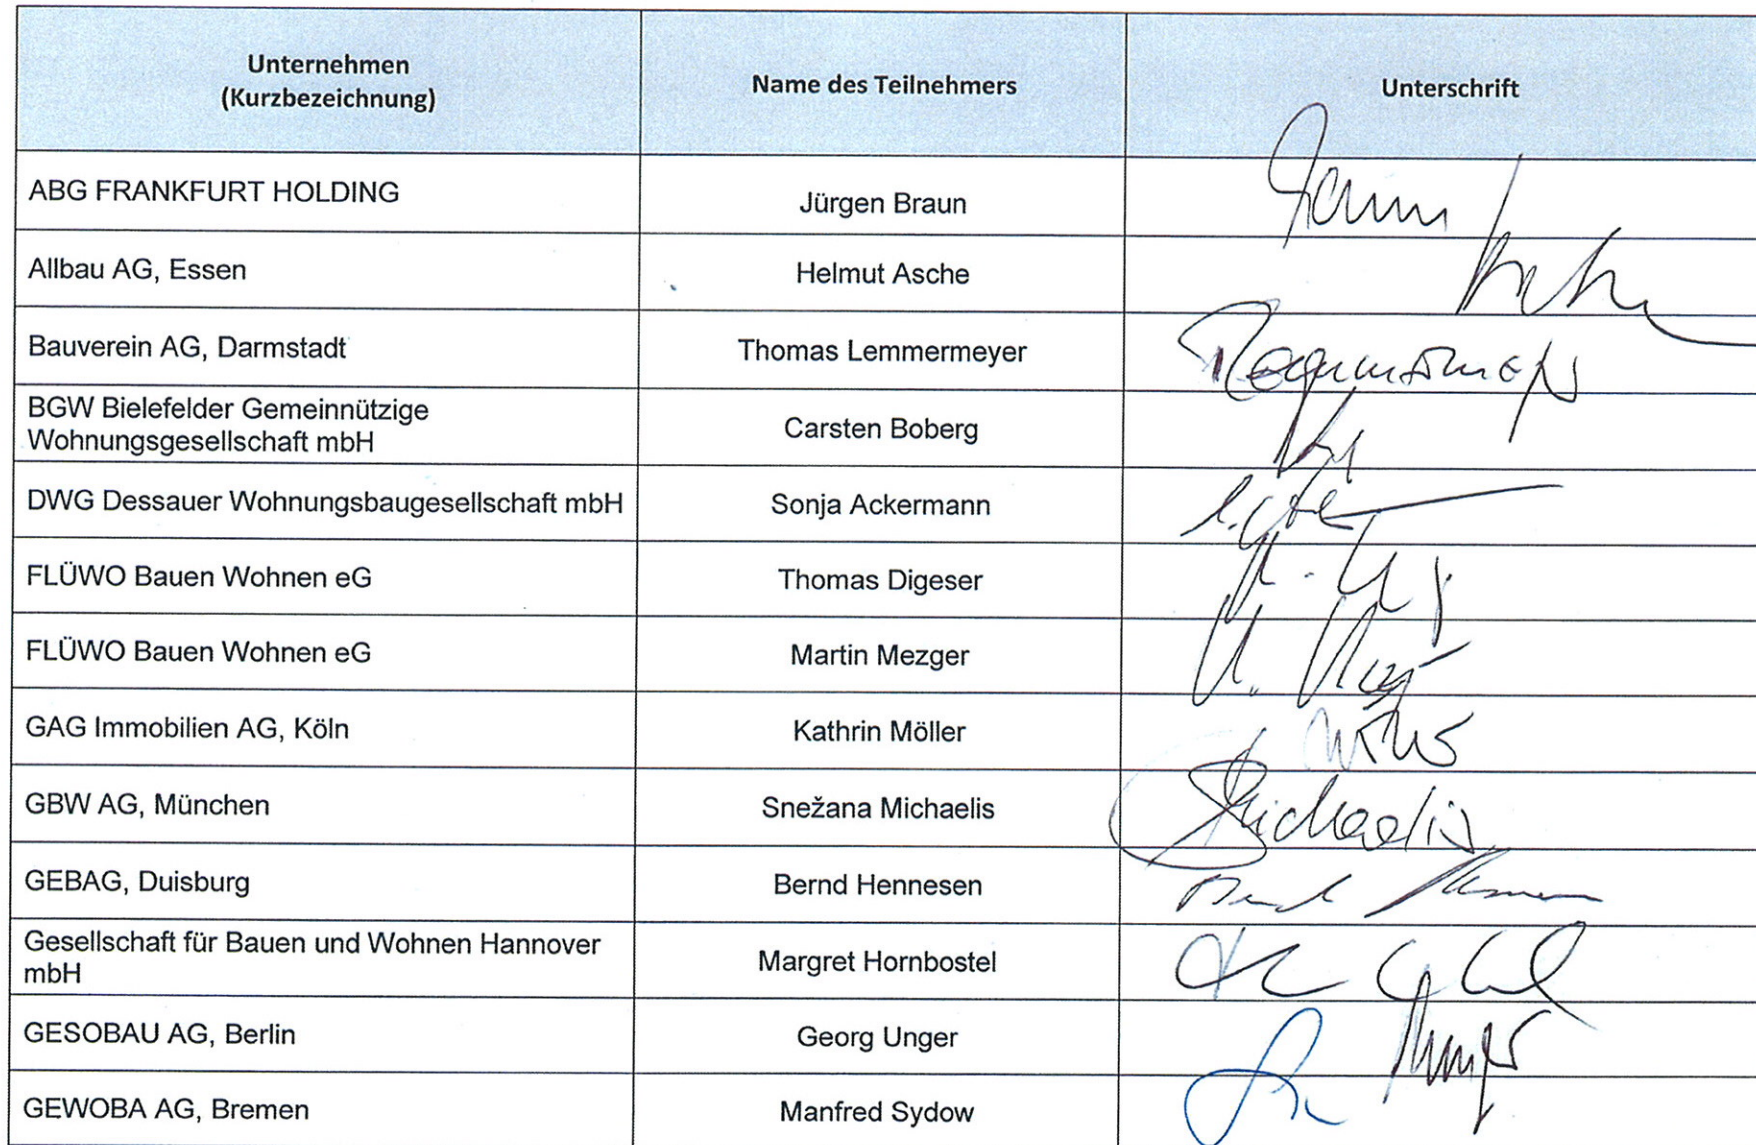 Unternehmen
(Kurzbezeichnung)
Name des Teilnehmers
Unterschrift
ABG FRANKFURT HOLDING
Jürgen Braun
Allbau AG, Essen
Helmut Asche
Bauverein AG, Darmstadt
Thomas Lemmermeyer
BGW Bielefelder Gemeinnützige
Wohnungsgesellschaft mbH
Carsten Boberg
DWG Dessauer Wohnungsbaugesellschaft mbH
Sonja Ackermann
FLÜWO Bauen Wohnen eG
Thomas Digeser
FLÜWO Bauen Wohnen eG
Martin Mezger
GAG Immobilien AG, Köln
Kathrin Möller
GBW AG, München
Snežana Michaelis
Michaelis
GEBAG, Duisburg
Bernd Hennesen
Gesellschaft für Bauen und Wohnen Hannover
mbH
Margret Hornbostel
GESOBAU AG, Berlin
Georg Unger
GEWOBA AG, Bremen
Manfred Sydow